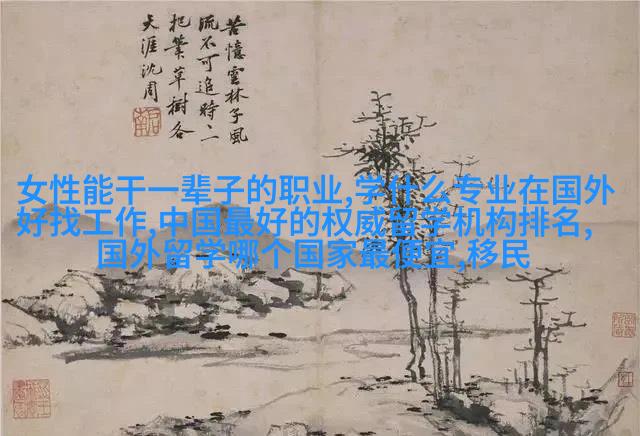 苦憶雲林子風
流不可追時二
把筆草樹各
天涯沈周
女性能干一辈子的职业,学什么专业在国外
好找工作,中国最好的权威留学机构排名,
国外留学哪个国家最便宜,移民